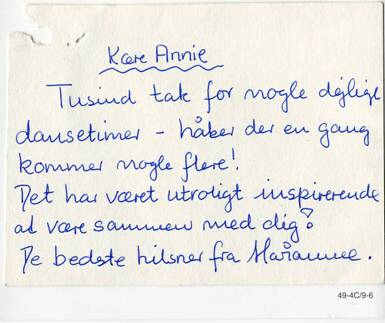 Kære Annie
Tusind tak for nogle dejlige
dansetimer - håber der en gang
kommer nogle flere!
Det har været utroligt inspirerende
at være sammen med dig!
De bedste hilsner fra Marianne.
49-4C/9-6